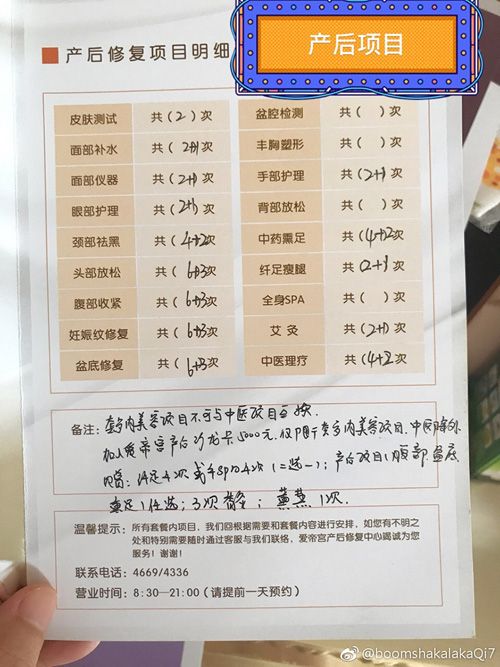 产后项目
产后修复项目明细
皮肤测试 共(2)次 盆腔检测 共( )次
面部补水 共(2+1)次 丰胸塑形 共( )次
面部仪器 共(2+1)次 手部护理 共(2+1)次
眼部护理 共(2+1)次 背部放松 共( )次
颈部祛黑 共(4+2)次 中药熏足 共(4+2)次
头部放松 共(6+3)次 纤足瘦腿 共(2+1)次
腹部收紧 共(6+3)次 全身SPA 共( )次
妊娠纹修复 共(6+3)次 艾灸 共(2+1)次
盆底修复 共(6+3)次 中医理疗 共(4+2)次
备注:套餐内美容项目不可与中医项目互换.
加入爱帝宫产后沙龙卡5000元.仅限于套餐内美容项目.中医除外
足4次 或手SPA4次(二选一);产后项目:腹部 盆底
任选;3次 ;薰蒸1次.
温馨提示:所有套餐内项目,我们回根据需要和套餐内容进行安排,如您有不明之
处和特别需要随时通过客服与我们联络,爱帝宫产后修复中心竭诚为您
服务!谢谢!
联系电话:4669/4336
营业时间:8:30—21:00(请提前一天预约)
@boomshakalakaQi7